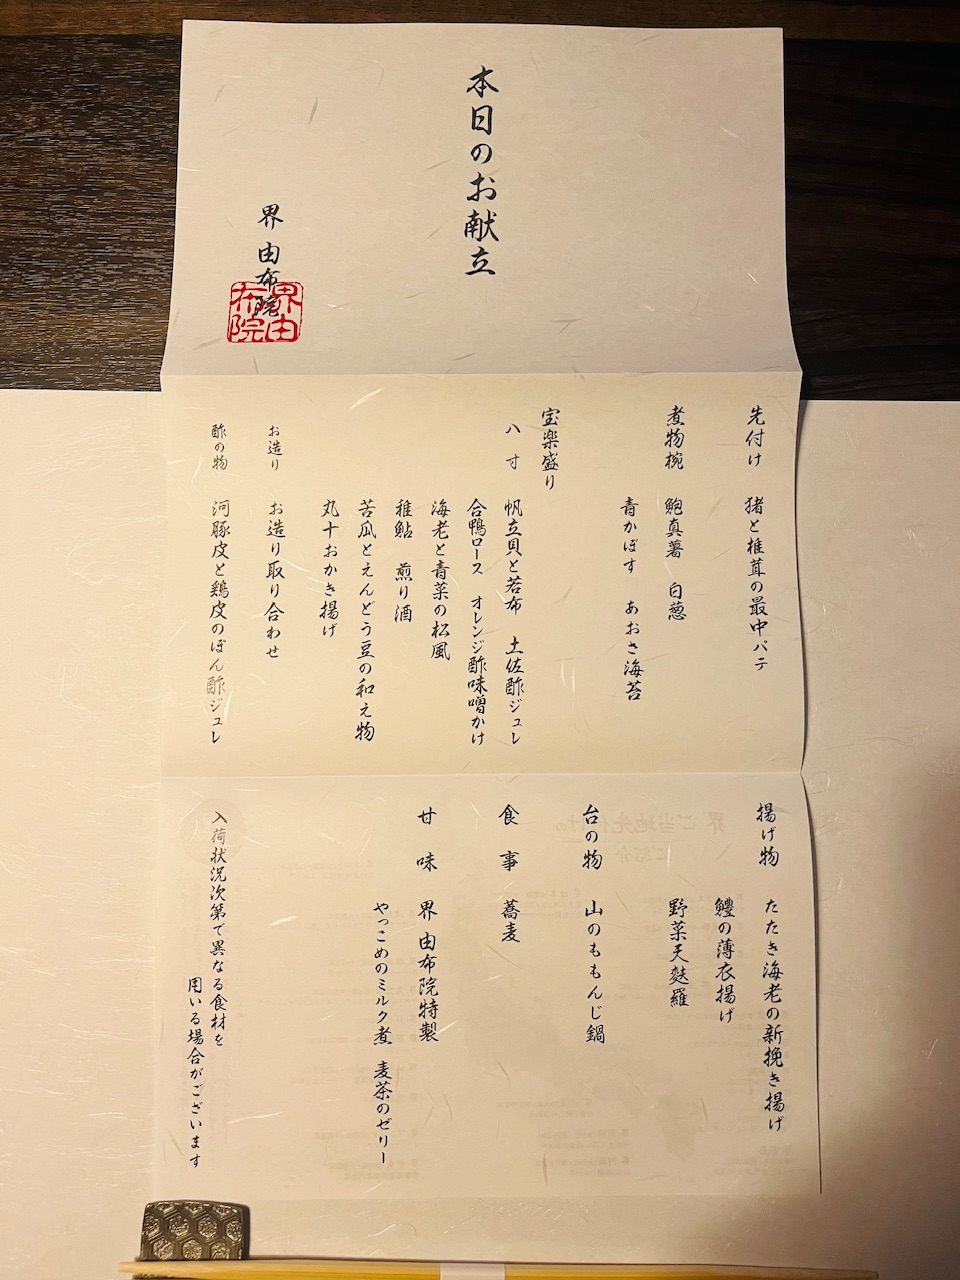 本日のお献立
界 由布院
界由布院
先付け 猪と椎茸の最中パテ
煮物椀 鮑真薯 白葱
青かぼす あおさ海苔
宝楽盛り
八寸 帆立貝と若布 土佐酢ジュレ
合鴨ロース オレンジ酢味噌かけ
海老と青菜の松風
稚鮎 煎り酒
苦瓜とえんどう豆の和え物
丸十おかき揚げ
お造り お造り取り合わせ
酢の物 河豚皮と鶏皮のぽん酢ジュレ
揚げ物 たたき海老の新挽き揚げ
鱧の薄衣揚げ
野菜天麩羅
台の物 山のももんじ鍋
食事 蕎麦
甘味 界 由布院特製
やっこめのミルク煮 麦茶のゼリー
入荷状況次第で異なる食材を
用いる場合がございます